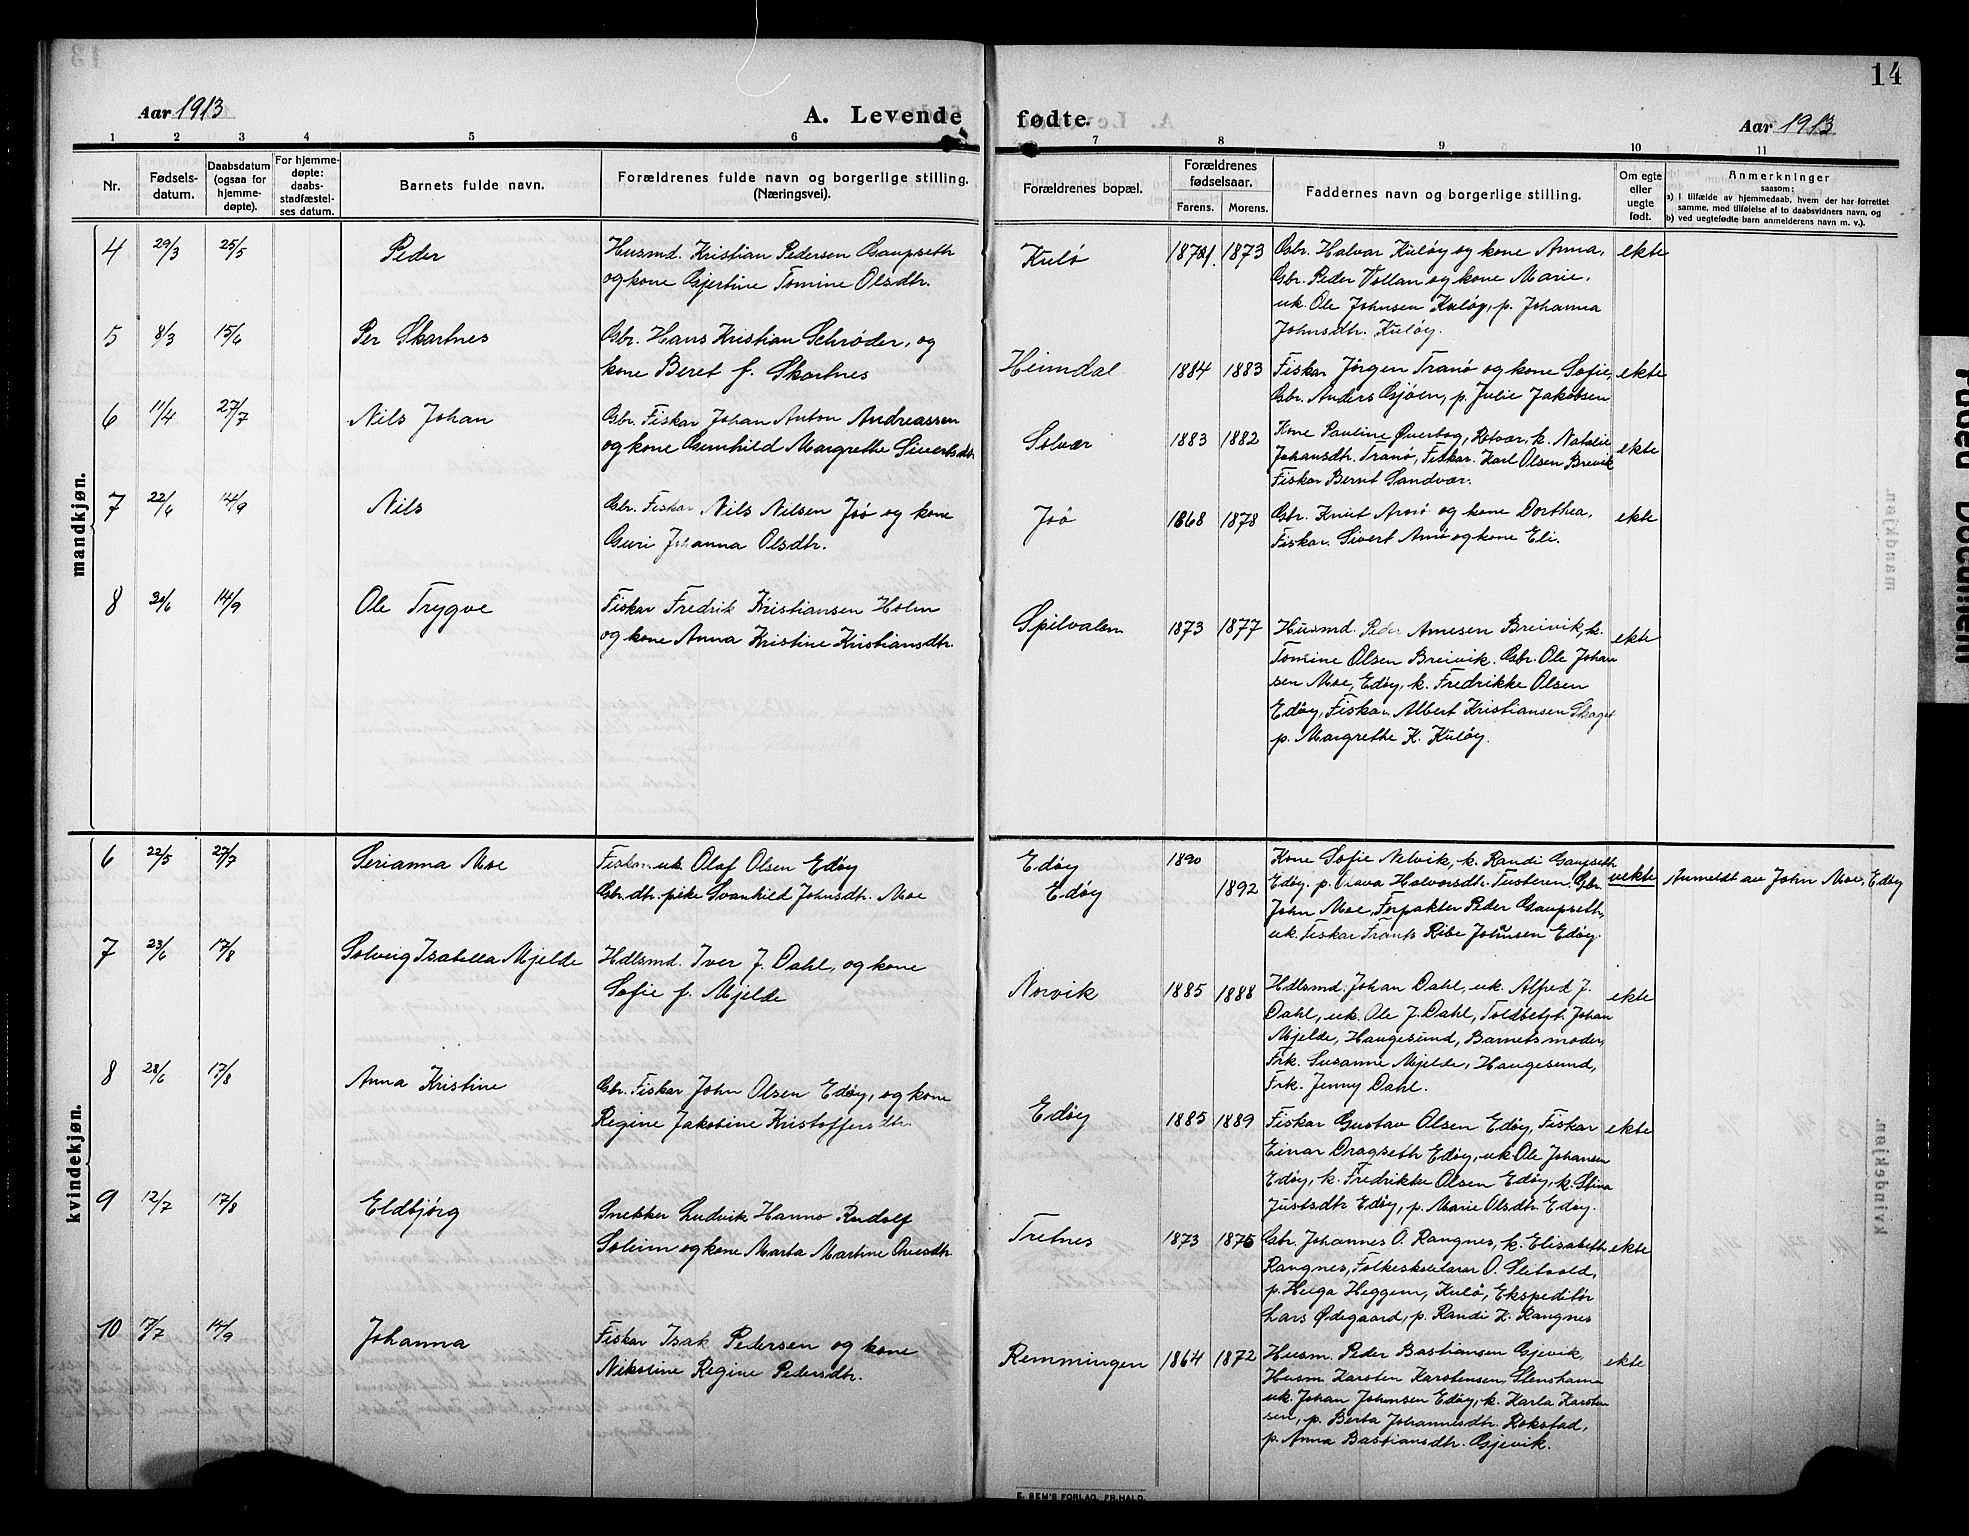 14
Aar 1913
A. Levende fødte.
Aar 1913
1 2 3 4 5 6 7 8 9 10 11
Nr.
Fødselsdatum.
Daabsdatum (ogsaa for hjemmedøpte).
For hjemmedøpte: daabsstadfæstelses datum.
Barnets fulde navn.
Forældrenes fulde navn og borgerlige stilling. (Næringsvei).
Forældrenes bopæl.
Forældrenes fødselsaar.
Farens. Morens.
Faddernes navn og borgerlige stilling.
Om egte eller uegte født.
Anmerkninger
saasom:
a) I tilfælde av hjemmedaab, hvem der har forrettet samme, med tilføielse af to daabsvidners navn, og
b) ved uegtefødte barn anmelderens navn m. v.).
mandkjøn.
4 29/3 25/5 Peder
Husmd. Kristian Pedersen Gaupseth
og kone Gjertine Tomine Olsdtr.
Kulø 1871. 1873
Gbr. Halvar Kuløy og kone Anna,
Gbr. Peder Vollan og kone Marie.
uk. Ole Johnsen Kuløy, p. Johanna
Johnsdtr. Kuløy.
ekte
5 8/3 15/6 Per Skartnes
Gbr. Hans Kristian Schrøder, og
kone Beret f. Skartnes
Heimdal 1884 1883
Fiskar Jørgen Tranø og kone Sofie,
Gbr. Anders Gjøen, p. Julie Jakobsen
ekte
6 11/4 27/7 Nils Johan
Gbr. Fiskar Johan Anton Andreassen
og kone Gunhild Margrethe Sivertsdtr.
Solvær 1883 1882
Kone Pauline Øverbog, Rotvær, k. Natalie
Johansdtr. Tranø, Fiskar. Karl Olsen Breivik
Fiskar Bernt Sandvær.
ekte
7 22/6 14/9 Nils
Gbr. Fiskar Nils Nilsen Jøø og kone
Guri Johanna Olsdtr.
Jøø 1868 1878
Gbr. Knut Arnø og kone Dorthea,
Fiskar. Sivert Arnø og kone Eli.
ekte
8 30/6 14/9 Ole Trygve
Fiskar Fredrik Kristiansen Holm
og kone Anna Kristine Kristiansdtr.
Spilvalen 1873 1877
Husmd. Peder Arnesen Breivik, k.
Tomine Olsen Breivik. Gbr. Ole Johan
sen Moe, Edøy, k. Fredrikke Olsen
Edøy, Fiskar Albert Kristiansen Skaget
p. Margrethe K. Kuløy.
ekte
kvindekjøn.
6 22/5 27/7 Serianna Moe
Fiskar. uk. Olaf Olsen Edøy
Gbr. dtr. pike Svanhild Johnsdtr. Moe
Edøy 1890
Edøy 1892
Kone Sofie Nelvik, k. Randi Gaupseth
Edøy. p. Olava Halvorsdtr. Tusteren. Gbr.
John Moe, Forpakter Peder Gaupseth,
uk. Fiskar Frants Ribe Johnsen Edøy.
uekte
Anmeldt av John Moe, Edøy
7 23/6 17/8 Solveig Isabella Mjelde
Hdlsmd. Iver J. Dahl, og kone
Sofie f. Mjelde
Norvik 1885 1888
Hdlsmd. Johan Dahl, uk. Alfred J.
Dahl, uk. Ole J. Dahl, Toldbetjt. Johan
Mjelde, Haugesund, Barnets moder,
Frk. Susanne Mjelde, Haugesund,
Frk. Jenny Dahl.
ekte
8 28/6 17/8 Anna Kristine
Gbr. Fiskar John Olsen Edøy, og kone
Regine Jakobine Kristoffersdtr.
Edøy 1885 1889
Fiskar Gustav Olsen Edøy, Fiskar
Einar Dragseth Edøy, uk Ole Johansen
Edøy, k. Fredrikke Olsen Edøy, k. Stina
Justsdtr Edøy, p. Marie Olsdtr. Edøy.
ekte
9 12/7 17/8 Eldbjørg
Snekker Ludvik Hanno Rudolf
Soleim og kone Marta Martine Ovesdtr
Tretnes 1873 1875
Gbr. Johannes O. Rangnes, k. Elisabeth
Rangnes, Folkeskolelærar O. Sletvold,
p. Helga Heggem, Kulø, Ekspeditør
Lars Ødegaard, p. Randi L. Rangnes
ekte
10 17/7 14/9 Johanna
Fiskar Isak Pedersen og kone
Nikoline Regine Pedersdtr.
Remmingen 1864 1872
Husm. Peder Bastiansen Gjevik,
Husm. Karsten Karstensen, Stenshamn
uk. Johan Johnsen Edøy, k. Karla Karsten
sen, p. Berta Johannesdtr. Rokstad,
p. Anna Bastiansdtr. Gjevik.
ekte
E. SEM'S FORLAG, FR.HALD.